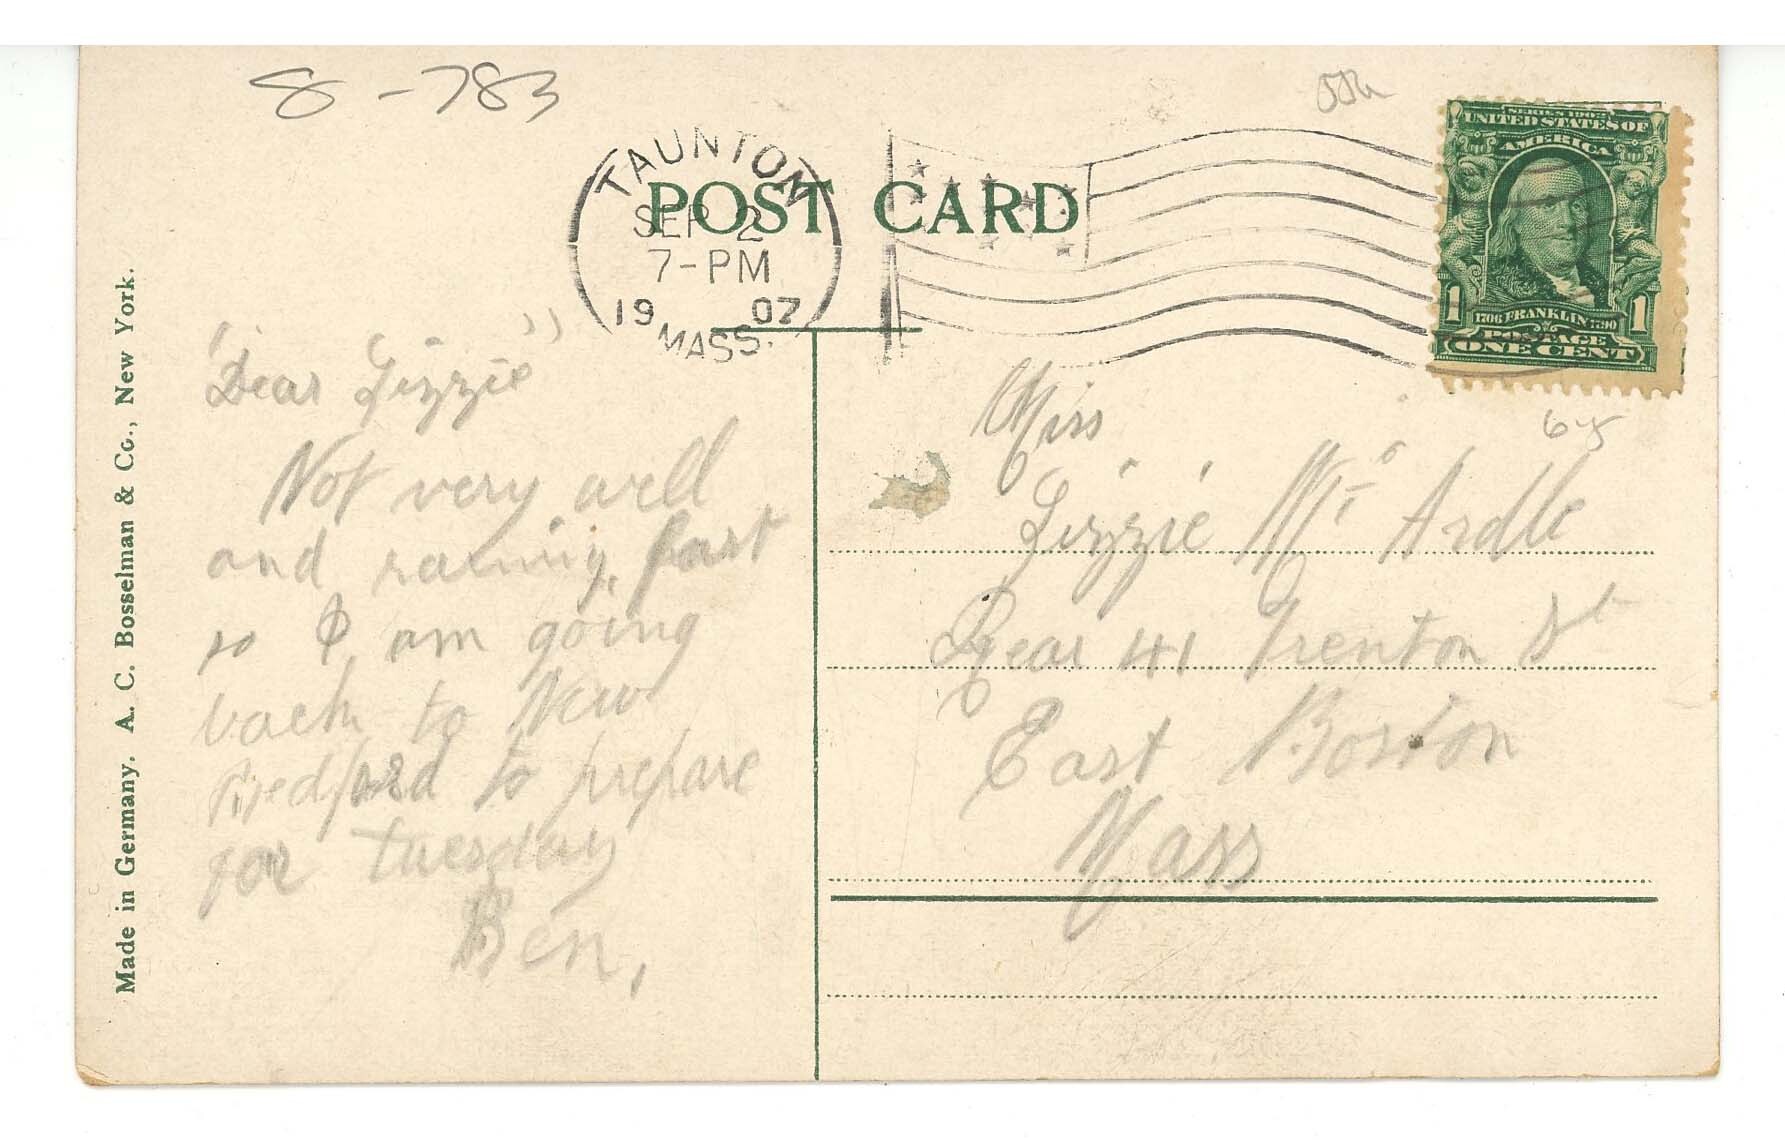 8-783
TAUNTON
SEP 2
7-PM
1907
MASS.
POST CARD
SERIES 1902
UNITED STATES OF
AMERICA
1706 FRANKLIN 1790
1 1
POSTAGE
ONE CENT
65
Made in Germany. A. C. Bosselman & Co., New York.
"Dear Lizzie"
Not very well
and raining, fast
so I am going
back to New
Bedford to prepare
for tuesday
Ben,
Miss
Lizzie Mc Ardle
Rear 41 Trenton St
East Boston
Mass